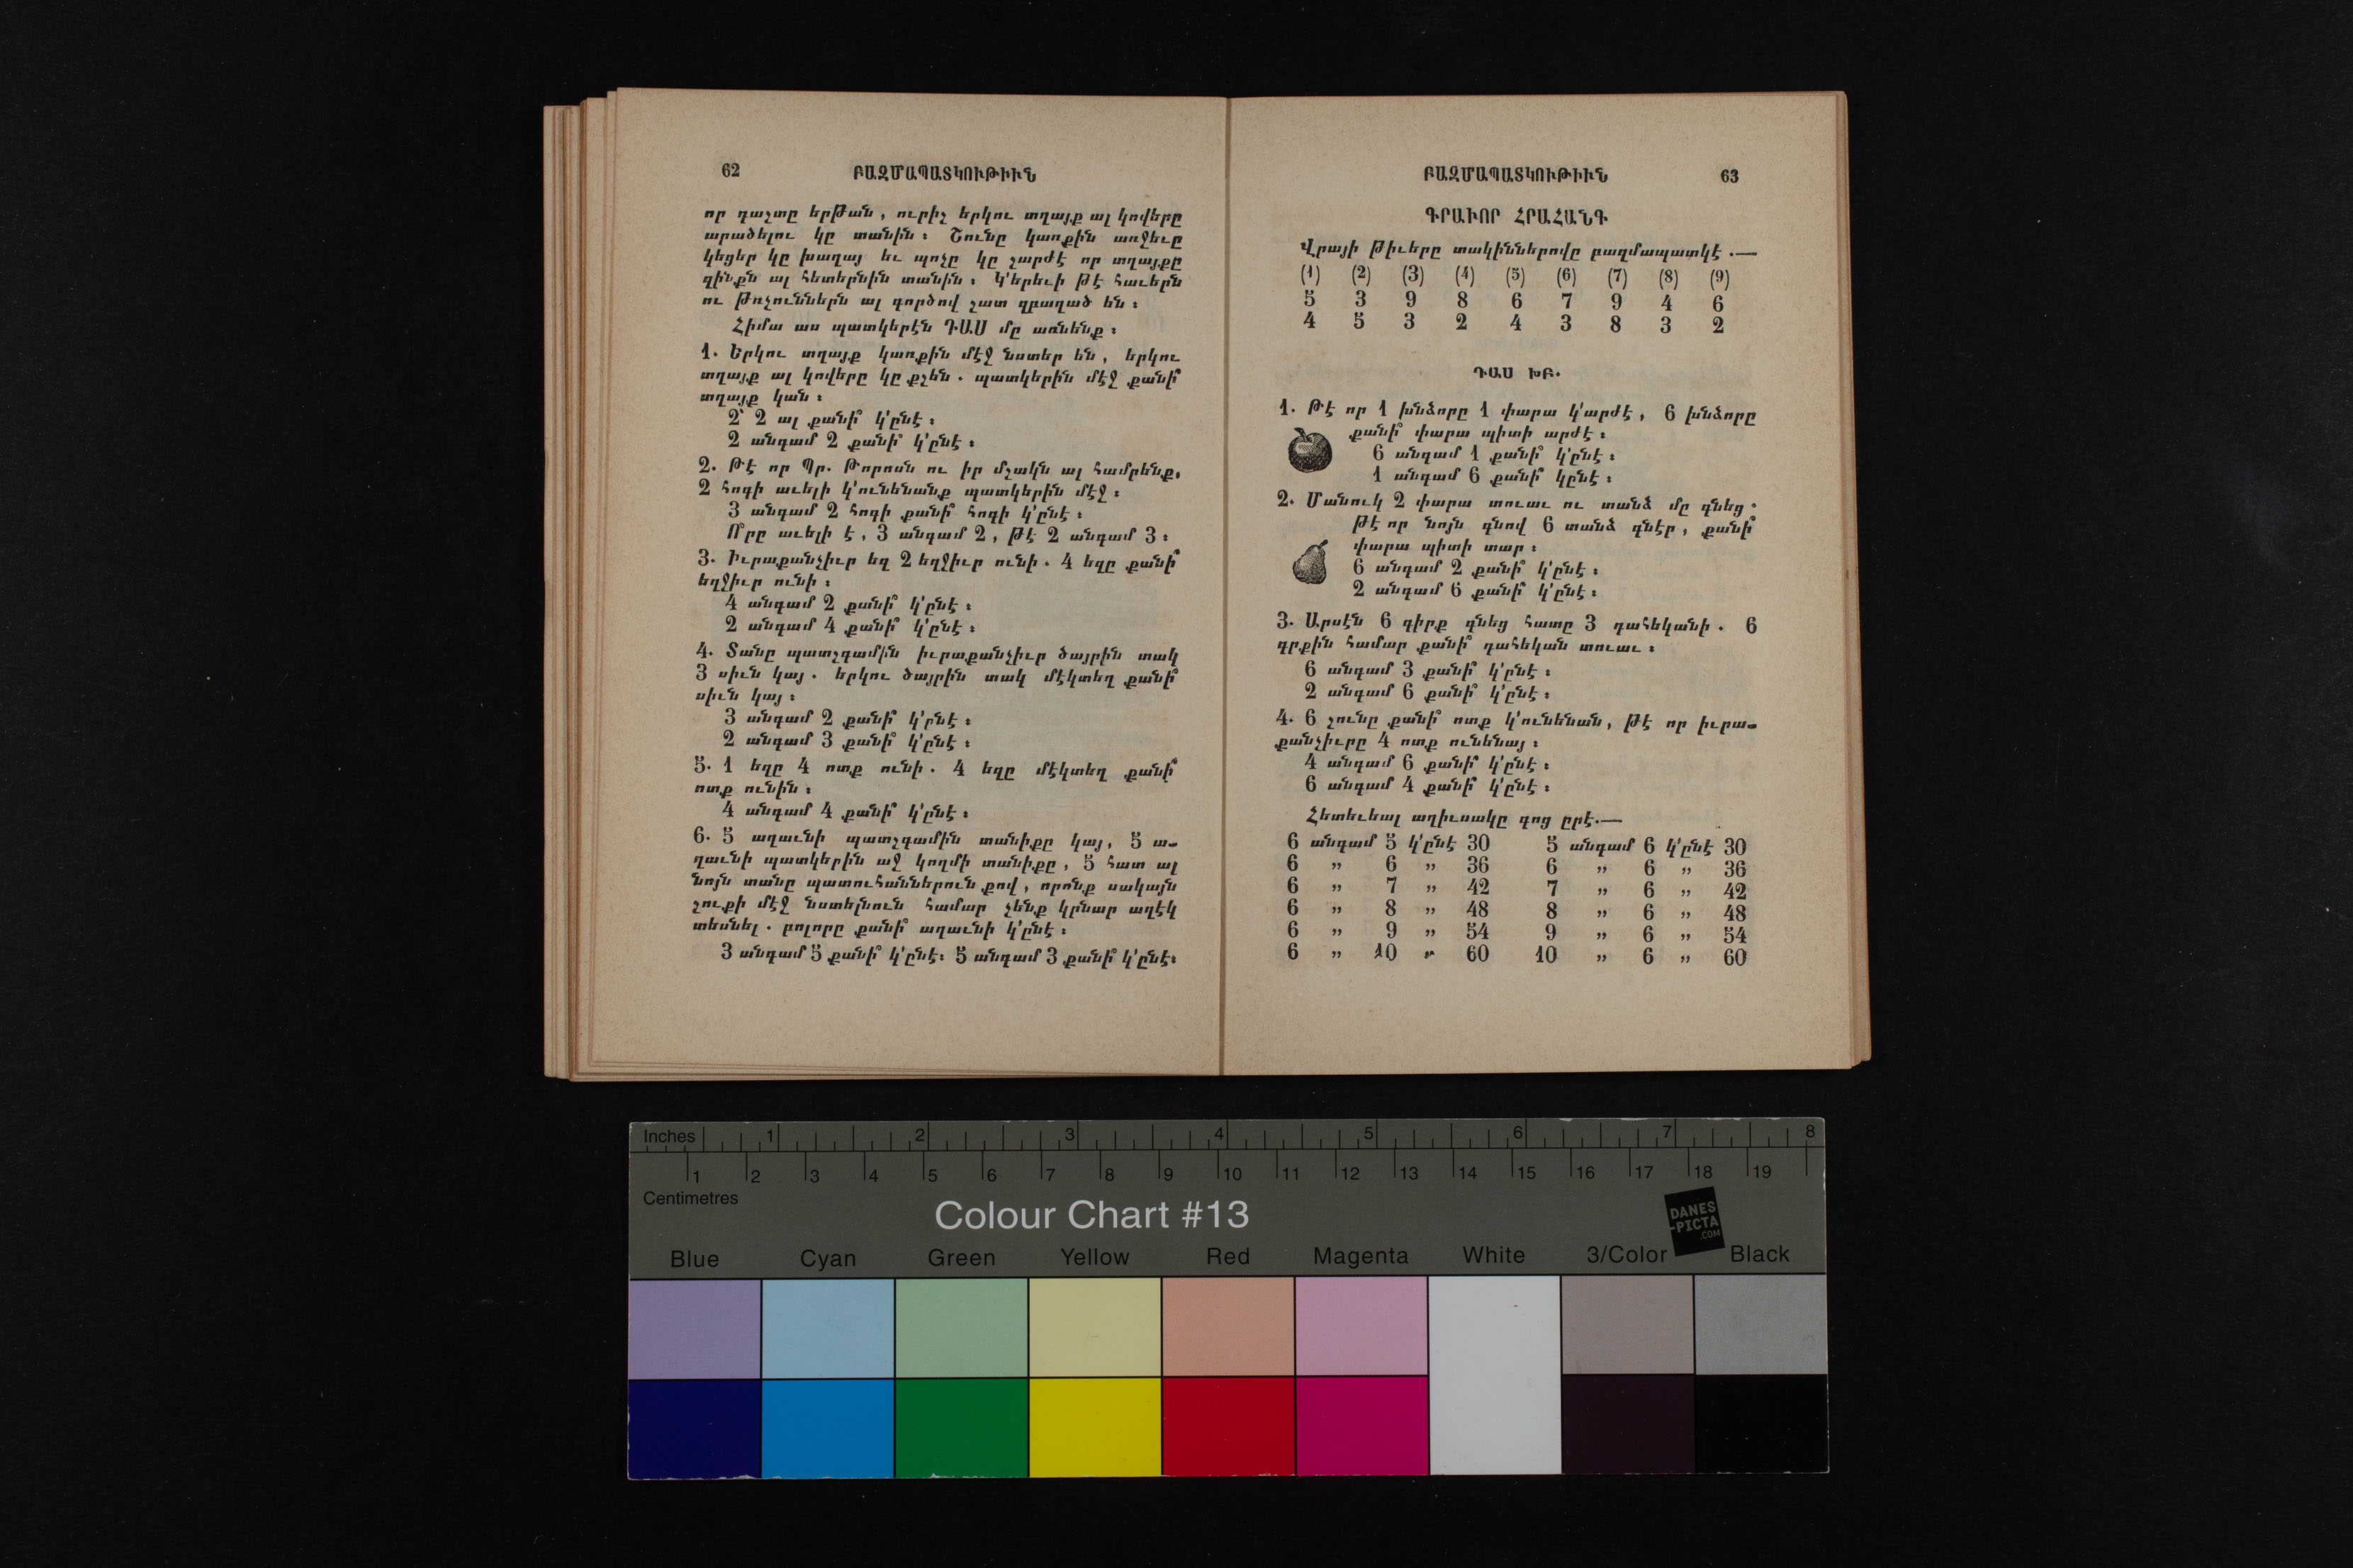 62 ԲԱԶՄԱՊԱՏԿՈՒԹԻՒՆ
որ դաշտը երթան, ուրիշ երկու տղայք ալ կովերը
արածելու կը տանին։ Շունը կառքին առջեւը
կեցեր կը խաղայ եւ պոչը կը շարժէ որ տղայքը
զինքն ալ հետերնին տանին։ Կ'երեւի թէ հաւերն
ու թռչուններն ալ գործով շատ զբաղած են։
Հիմա աս պատկերէն ԴԱՍ մը առնենք։
1. Երկու տղայք կառքին մէջ նստեր են, երկու
տղայք ալ կովերը կը քշեն. պատկերին մէջ քանի՞
տղայք կան։
2՝ 2 ալ քանի՞ կ'ընէ։
2 անգամ 2 քանի՞ կ'ընէ։
2. Թէ որ Պր. Թորոսն ու իր մշակն ալ համրենք,
2 հոգի աւելի կ'ունենանք պատկերին մէջ։
3 անգամ 2 հոգի քանի՞ հոգի կ'ընէ։
Ո՞րը աւելի է, 3 անգամ 2, թէ 2 անգամ 3։
3. Իւրաքանչիւր եզ 2 եղջիւր ունի. 4 եզը քանի՞
եղջիւր ունի։
4 անգամ 2 քանի՞ կ'ընէ։
2 անգամ 4 քանի՞ կ'ընէ։
4. Տանը պատշգամին իւրաքանչիւր ծայրին տակ
3 սիւն կայ. երկու ծայրին տակ մէկտեղ քանի՞
սիւն կայ։
3 անգամ 2 քանի՞ կ'ընէ։
2 անգամ 3 քանի՞ կ'ընէ։
5. 1 եզը 4 ոտք ունի. 4 եզը մէկտեղ քանի՞
ոտք ունին։
4 անգամ 4 քանի՞ կ'ընէ։
6. 5 աղաւնի պատշգամին տանիքը կայ, 5 ա-
ղաւնի պատկերին աջ կողմի տանիքը, 5 հատ ալ
նոյն տանը պատուհաններուն քով, որոնք սակայն
շուքի մէջ նստելնուն համար չենք կրնար աղէկ
տեսնել. բոլորը քանի՞ աղաւնի կ'ընէ։
3 անգամ 5 քանի՞ կ'ընէ։ 5 անգամ 3 քանի՞ կ'ընէ։
ԲԱԶՄԱՊԱՏԿՈՒԹԻՒՆ 63
ԳՐԱՒՈՐ ՀՐԱՀԱՆԳ
Վրայի թիւերը տակիններովը բազմապատկէ.—
(1) (2) (3) (4) (5) (6) (7) (8) (9)
5 3 9 8 6 7 9 4 6
4 5 3 2 4 3 8 3 2
ԴԱՍ ԽԲ.
1. Թէ որ 1 խնձորը 1 փարա կ'արժէ, 6 խնձորը
քանի՞ փարա պիտի արժէ։
6 անգամ 1 քանի՞ կ'ընէ։
1 անգամ 6 քանի՞ կընէ։
2. Մանուկ 2 փարա տուաւ ու տանձ մը գնեց.
թէ որ նոյն գնով 6 տանձ գնէր, քանի՞
փարա պիտի տար։
6 անգամ 2 քանի՞ կ'ընէ։
2 անգամ 6 քանի՞ կ'ընէ։
3. Արսէն 6 գիրք գնեց հատը 3 դահեկանի. 6
գրքին համար քանի՞ դահեկան տուաւ։
6 անգամ 3 քանի՞ կ'ընէ։
2 անգամ 6 քանի՞ կ'ընէ։
4. 6 շունը քանի՞ ոտք կ'ունենան, թէ որ իւրա-
քանչիւրը 4 ոտք ունենայ։
4 անգամ 6 քանի՞ կ'ընէ։
6 անգամ 4 քանի՞ կ'ընէ։
Հետեւեալ աղիւսակը գոց ըրէ.—
6 անգամ 5 կ'ընէ 30 5 անգամ 6 կ'ընէ 30
6 „ 6 „ 36 6 „ 6 „ 36
6 „ 7 „ 42 7 „ 6 „ 42
6 „ 8 „ 48 8 „ 6 „ 48
6 „ 9 „ 54 9 „ 6 „ 54
6 „ 10 „ 60 10 „ 6 „ 60
Inches 1 2 3 4 5 6 7 8
1 2 3 4 5 6 7 8 9 10 11 12 13 14 15 16 17 18 19
Centimetres
Colour Chart #13
DANES
-PICTA
.COM
Blue Cyan Green Yellow Red Magenta White 3/Color Black